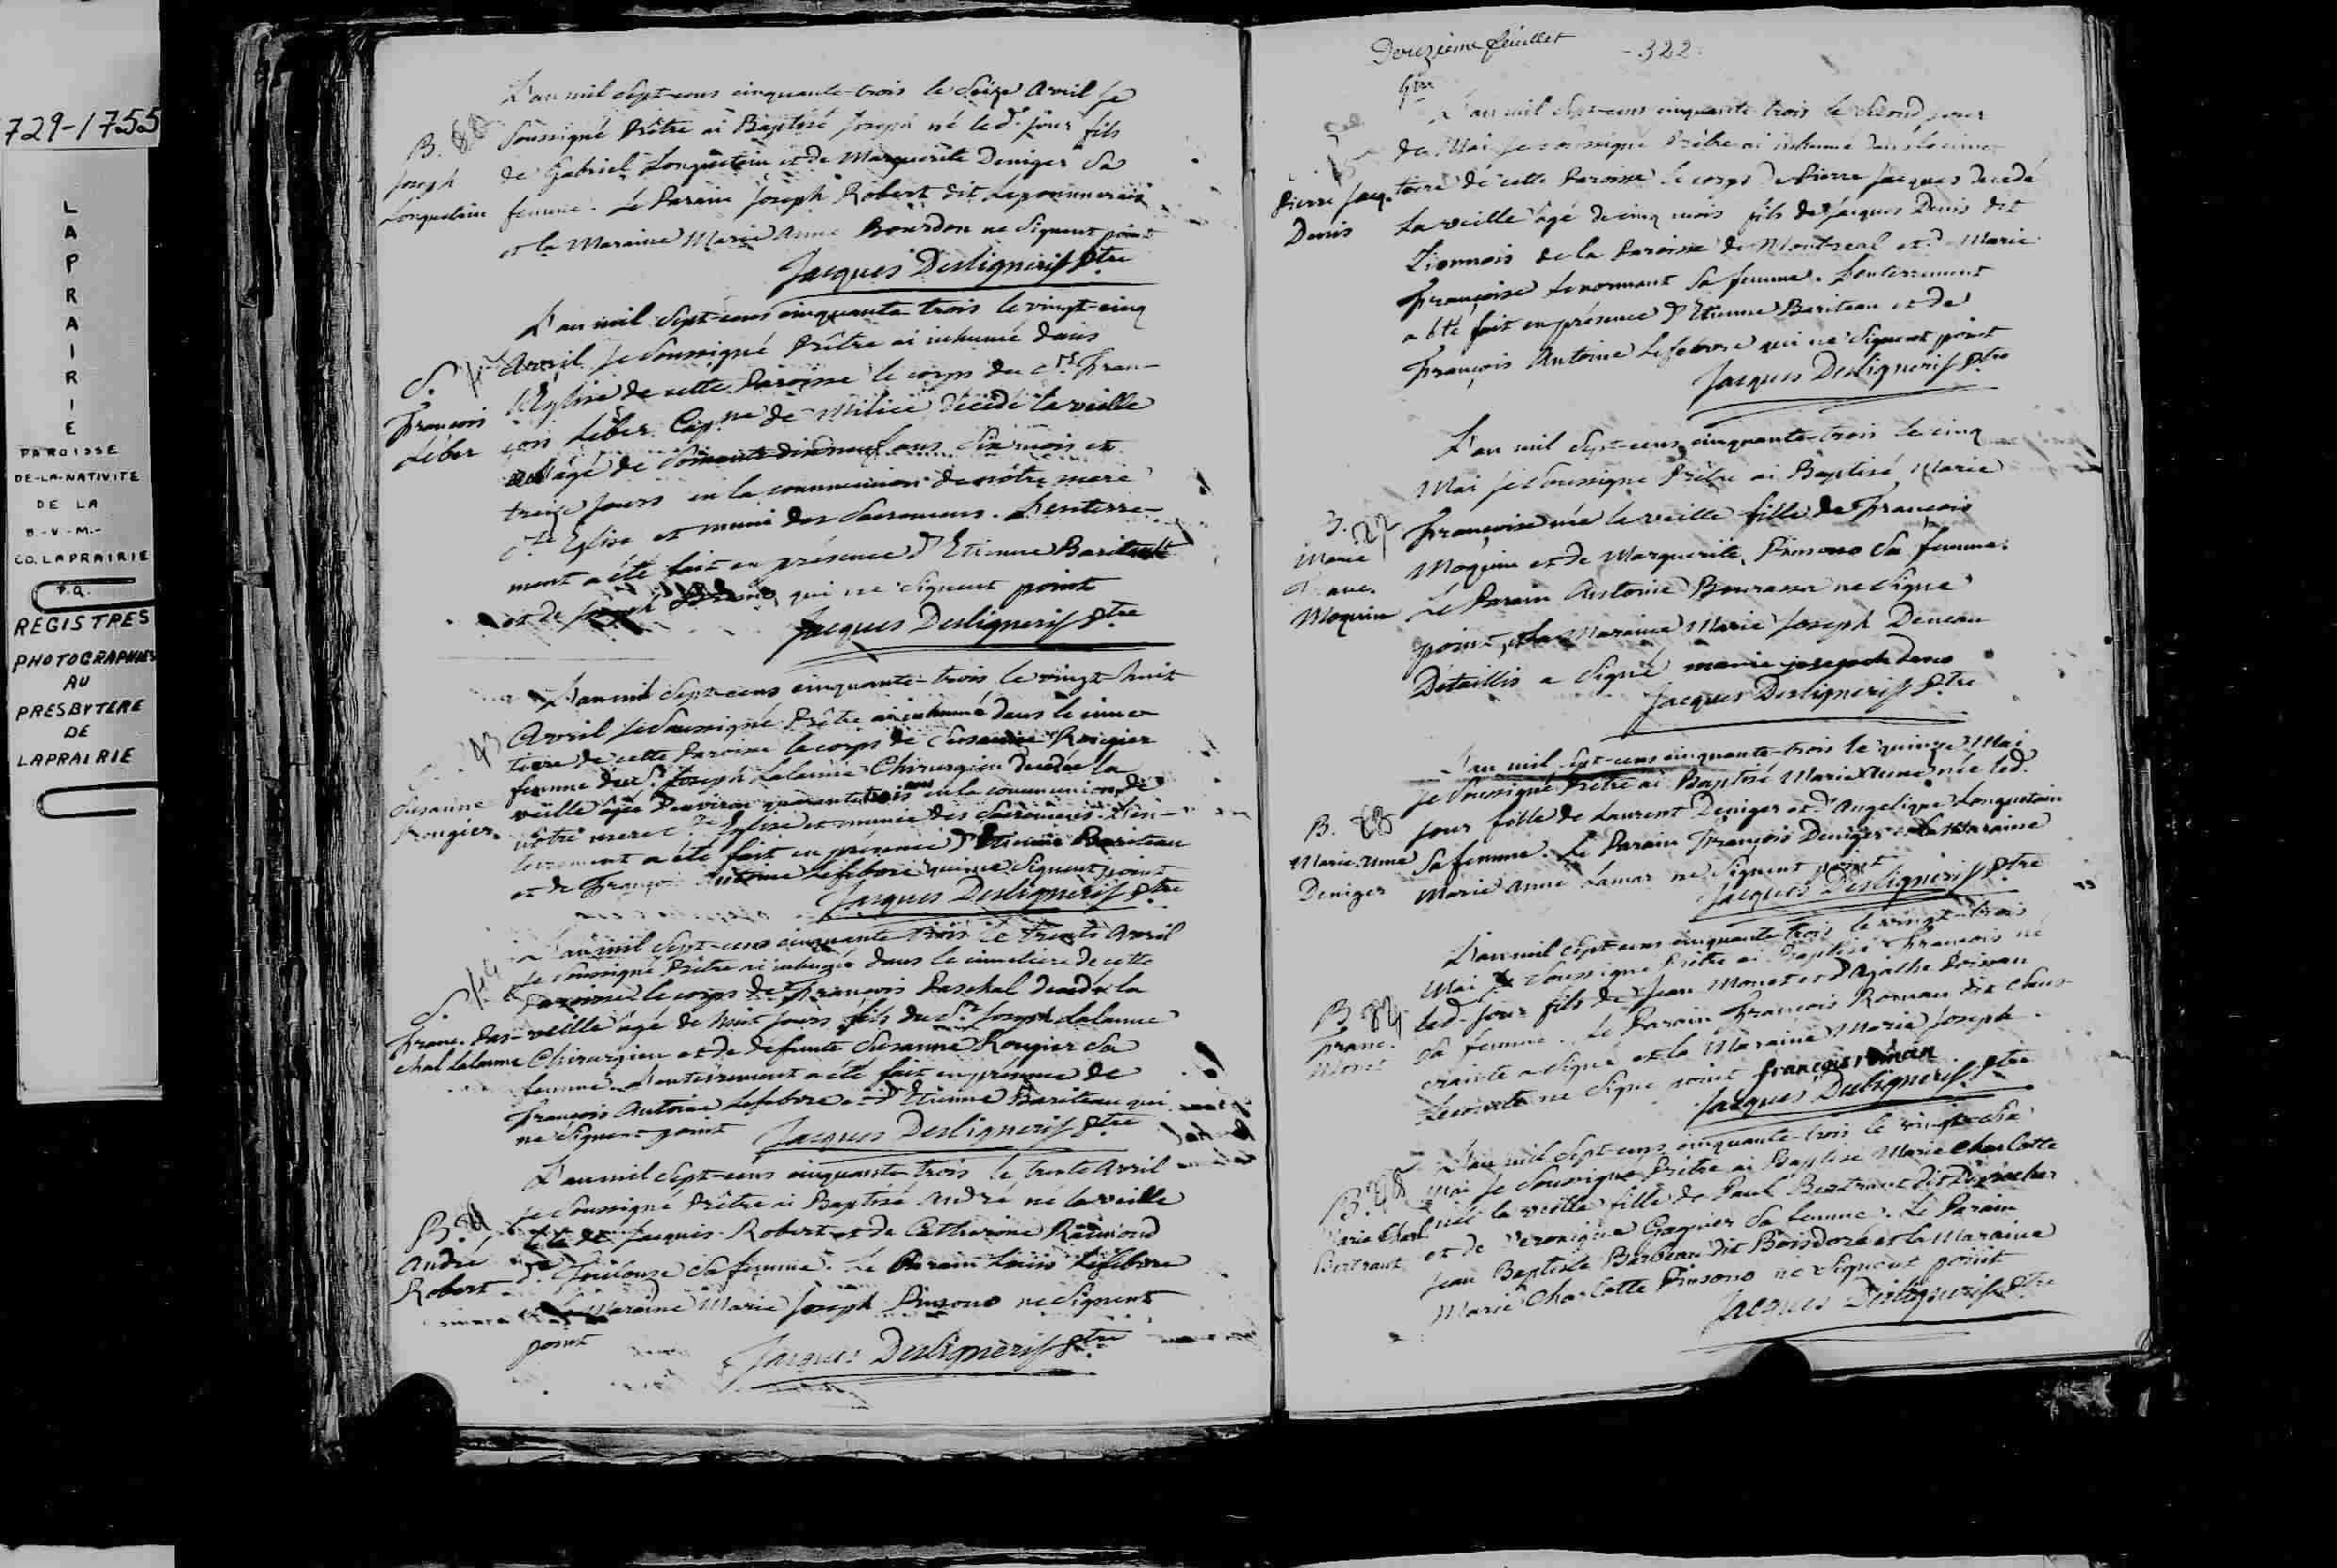 729-1755
LAPRAIRIE
PAROISSE
DE-LA-NATIVITE
DE LA
B.-V.-M.-
CO. LAPRAIRIE
P.Q.
REGISTRES
PHOTOGRAPHIES
AU
PRESBYTERE
DE
LAPRAIRIE
L'an mil Sept-cens cinquante-trois le Seize Avril Je
Soussigné Prêtre ai Baptisé Joseph né led. jour fils
de Gabriel Longuetein et de Marguerite Deniger Sa
femme. Le Parain Joseph Robert dit Lapommeraie
et la Maraine Marie Anne Bourdon ne Signent point
Jacques Desligneris Ptre
B.
Joseph
Longuetein
L'an mil Sept-cens cinquante-trois le vingt-cinq
Avril Je Soussigné Prêtre ai inhumé dans
l'Eglise de cette Paroisse le corps du Sr. Fran-
çois Léber Capne de Milice décédé la veille
agé de Soixante dix neuf ans Six mois et
treize jours en la communion de nôtre mere
Ste Eglise et muni des Sacremens. L'enterre-
ment a été fait en présence d'Etienne Bariteau
et de qui ne Signent point
Jacques Desligneris Ptre
S.
François
Léber
L'an mil Sept-cens cinquante-trois le vingt-huit
Avril Je Soussigné Prêtre ai inhumé dans le cime-
tiere de cette Paroisse le corps de Susanne Rougier
femme du Sr. Joseph Lalanne Chirurgien decedée la
veille agée d'environ quarante trois ans en la communion de
nôtre mere Ste Eglise et munie des Sacremens. L'en-
terrement a été fait en présence d'Etienne Bariteau
et de François Antoine Lefebvre qui ne Signent point
Jacques Desligneris Ptre
Susanne
Rougier
L'an mil Sept-cens cinquante trois le trente Avril
Je Soussigné Prêtre ai inhumé dans le cimetiere de cette
Paroisse le corps de François Paschal decedé la
veille agé de huit jours fils du Sr. Joseph Lalanne
Chirurgien et de défunte Susanne Rougier Sa
femme. L'enterrement a été fait en présence de
François Antoine Lefebvre et d'Etienne Bariteau qui
ne Signent point Jacques Desligneris Ptre
S.
Franc. Pas-
chal Lalanne
L'an mil Sept-cens cinquante trois le trente Avril
Je Soussigné Prêtre ai Baptisé André né la veille
fils de Jacques Robert et de Catherine Raimond
d. Toulouse Sa femme. Le Parain Louis Lefebvre
et la Maraine Marie Joseph Pinsono ne Signent
point Jacques Desligneris Ptre
B.
André
Robert
Douzieme feuillet -322.
L'an mil Sept-cens cinquante-trois le Second jour
de Mai Je Soussigné Prêtre ai inhumé dans le cime-
tiere de cette Paroisse le corps de Pierre Jacques decedé
la veille agé de cinq mois fils de Jacques Denis dit
Lionnois de la Paroisse de Montreal et de Marie
Françoise Lenormant Sa femme. L'enterrement
a été fait en présence d'Etienne Bariteau et de
François Antoine Lefebvre qui ne Signent point
Jacques Desligneris Ptre
Pierre Jacq.
Denis
L'an mil Sept-cens cinquante-trois le cinq
Mai Je Soussigné Prêtre ai Baptisé Marie
Françoise née la veille fille de François
Moquin et de Marguerite Pinsono Sa femme.
Le Parain Antoine Bourassa ne Signe
point, et la Maraine Marie Joseph Deneau
Détaillis a Signé marie joseph deno
Jacques Desligneris Ptre
Marie
Franc.
Moquin
L'an mil Sept-cens cinquante-trois le quinze Mai
Je Soussigné Prêtre ai Baptisé Marie Anne née led.
jour fille de Laurent Deniger et d'Angelique Longuetein
Sa femme. Le Parain François Deniger et la Maraine
Marie Anne Lamar ne Signent point
Jacques Desligneris Ptre
B. 83
Marie Anne
Deniger
L'an mil Sept-cens cinquante trois le vingt-trois
Mai Je Soussigné Prêtre ai Baptisé François né
led. jour fils de Jean Monet et d'Agathe
Sa femme. Le Parain François Roman dit Sans-
crainte a Signé et la Maraine Marie Joseph
Lecomte ne Signe point françois roman
Jacques Desligneris Ptre
B. 84
Franc.
Monet
L'an mil Sept-cens cinquante-trois le vingt-
Mai Je Soussigné Prêtre ai Baptisé Marie Charlotte
née la veille fille de Paul Bertrant dit Desrocher
et de Veronique Gagnier Sa femme. Le Parain
Jean Baptiste Barbeau dit Boisdoré et la Maraine
Marie Charlotte Pinsono ne Signent point
Jacques Desligneris Ptre
B.
Marie Charl.
Bertrant